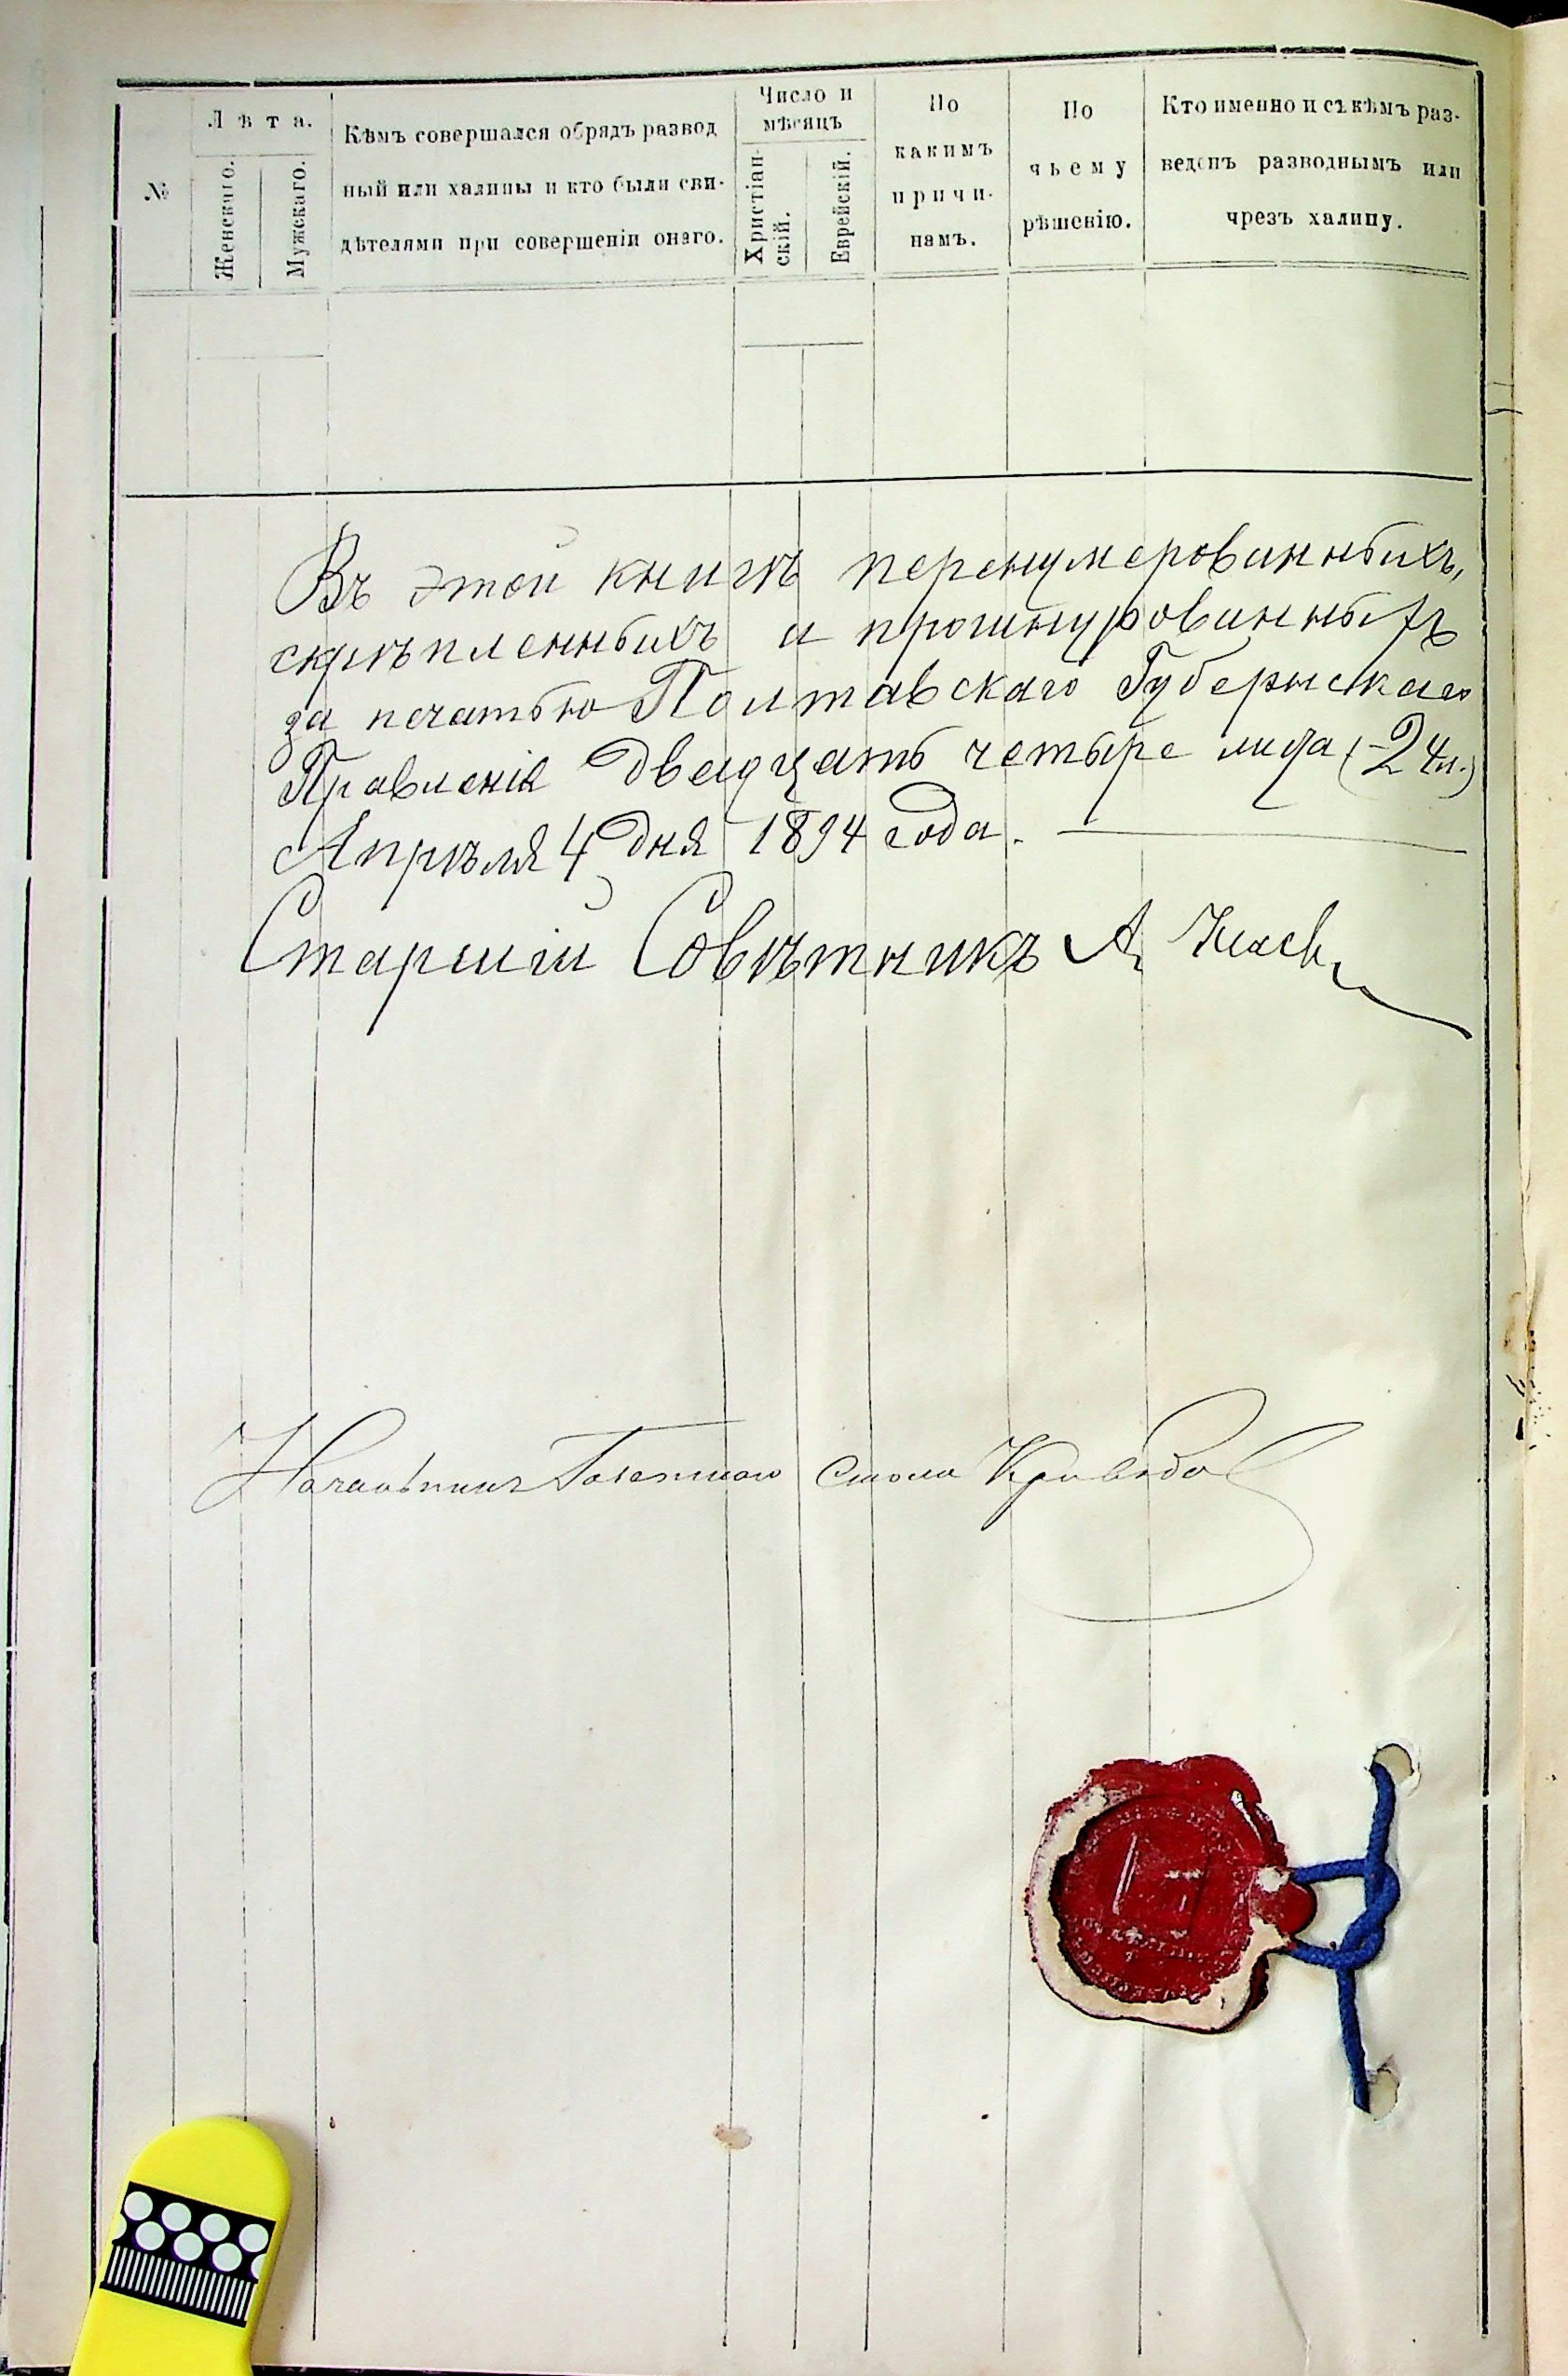 №
Лѣта.
Женскаго.
Мужскаго.
Кѣмъ совершался обрядъ развод
ный или халицы и кто были сви-
дѣтелями при совершеніи онаго.
Число и
мѣсяцъ
Христіан-
скій.
Еврейскій.
По
какимъ
причи-
намъ.
По
чьему
рѣшенію.
Кто именно и съ кѣмъ раз-
веденъ разводнымъ или
чрезъ халицу.
Въ этой книгѣ перенумерованныхъ,
скрѣпленныхъ и прошнурованныхъ
за печатью Полтавскаго Губернскаго
Правленія двадцать четыре листа (24 л.)
Апрѣля 4 дня 1894 года.
Старшій Совѣтникъ А.
Начальникъ Газетнаго Стола